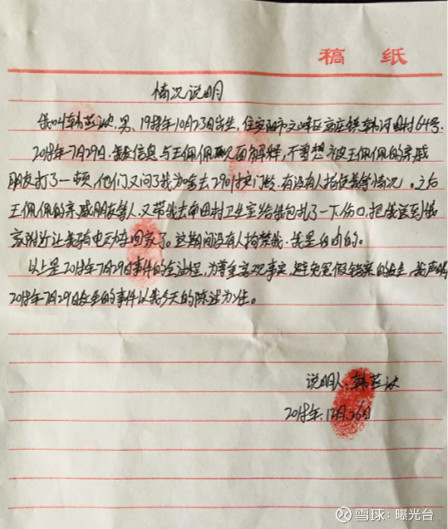 稿 纸
情况说明
我叫韩芸冰,男,1988年10月23日出生,住安阳市文峰区
2018年7月29日,我发信息与王佩佩见面解释,不曾想被王佩佩的亲戚
朋友打了一顿,他们又问了我为啥去 有没有人指使等情况。之后
王佩佩的亲戚朋友等人又带我去 村卫生室给我包扎了一下伤口,把我送到我
家附近让我骑电动车回家了。这期间没有人拘禁我,我是自由的。
以上是2018年7月29日事件的经过,为尊重客观事实,避免冤假错案的发生,我声明
2018年7月29日发生的事件以我今天的陈述为准。
说明人:韩芸冰
2018年12月26日
雪球:曝光台